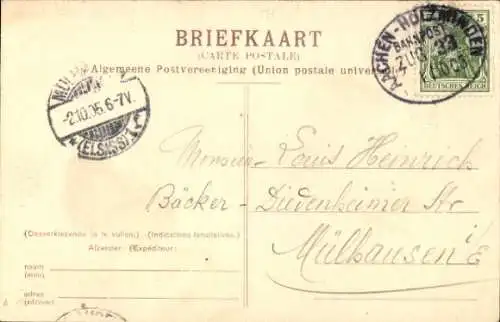 BRIEFKAART
(CARTE POSTALE)
Algemeene Postvereeniging (Union postale universelle)
AACHEN-HOLZMINDEN
BAHNPOST
ZUG 33
5
DEUTSCHES REICH
-2.10.05.6-7V.
(ELSASS)
Monsieur Louis Heinrich
Bäcker - Diedenheimer Str
Mülhausen i E
(Onderstaande in te vullen.) (Indications facultatives.)
Afzender (Expéditeur):
naam
(nom)
adres